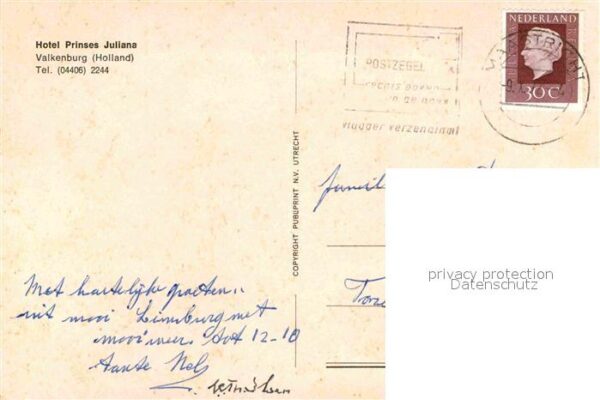 Hotel Prinses Juliana
Valkenburg (Holland)
Tel. (04406) 2244
COPYRIGHT PUBLIPRINT N.V. UTRECHT
POSTZEGEL
rechts boven
in de hoek
vlugger verzending
MAASTRICHT
NEDERLAND
30 C
privacy protection
Datenschutz
Met hartelijke groeten
uit mooi Limburg met
mooi weer. tot 12-10
tante Nels